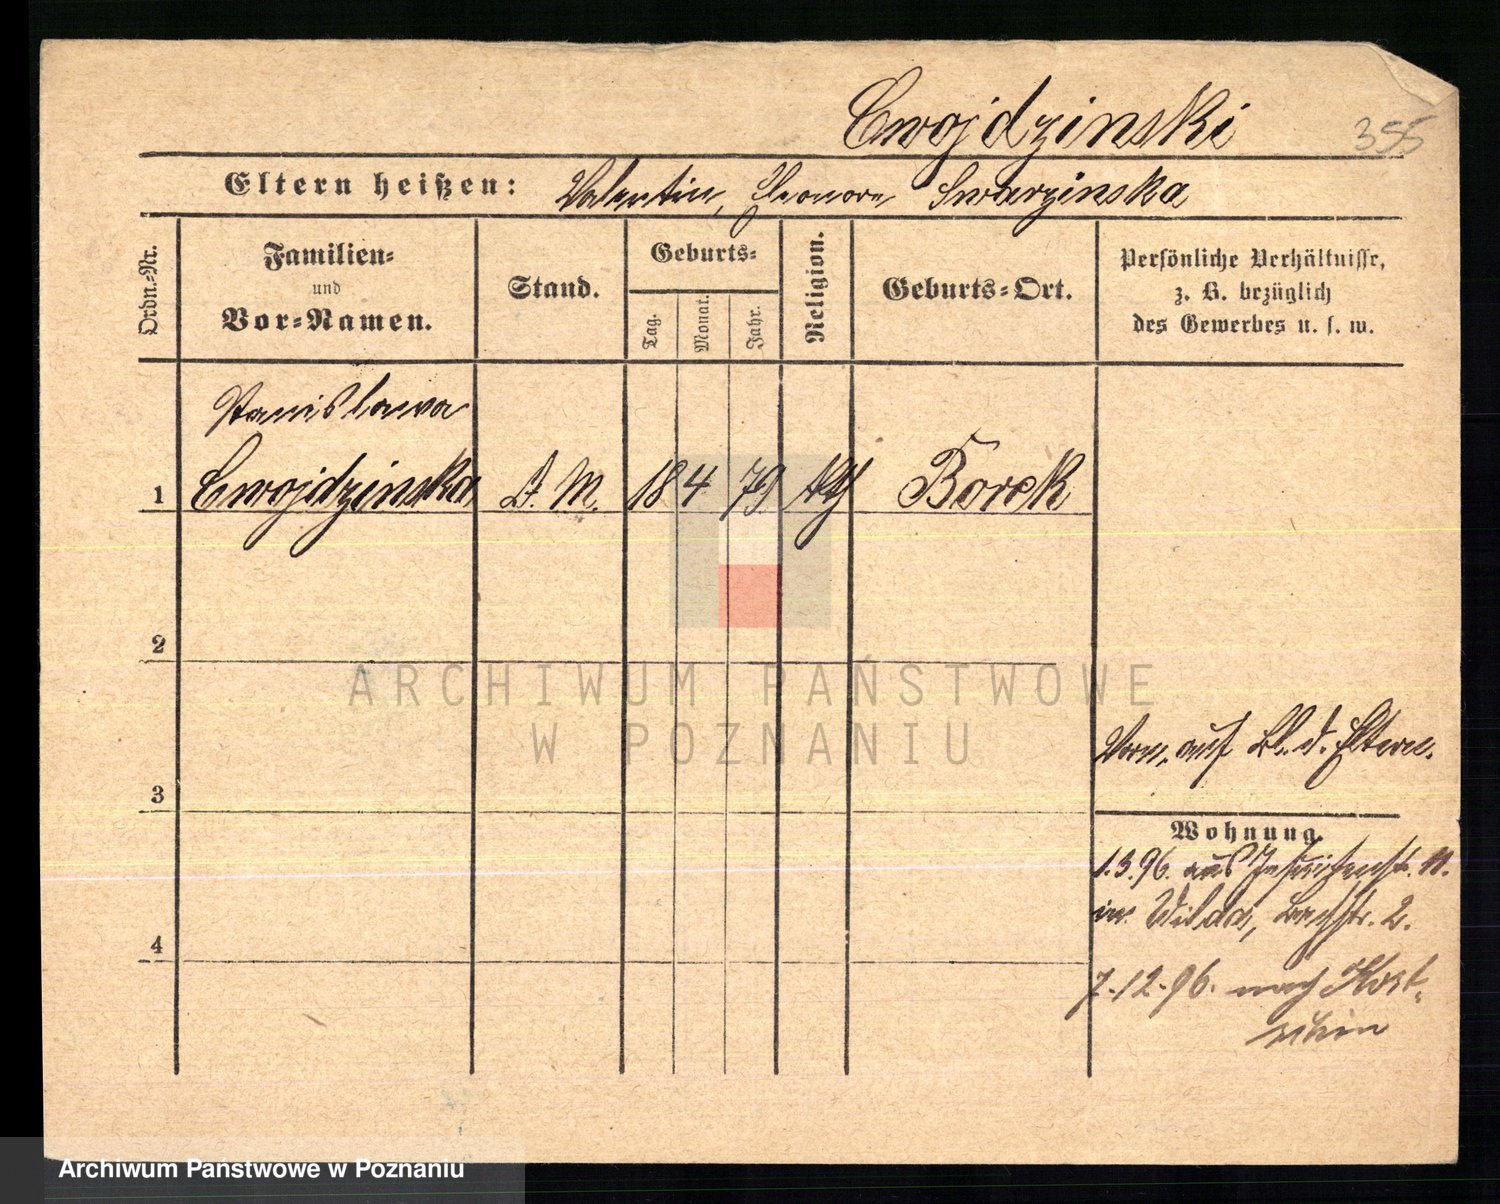 Cwojdzinski
355
Eltern heißen: Valentin, Eleonore Swarzinska
Ordn.-Nr.
Familien-
und
Vor-Namen.
Stand.
Geburts-
Tag.
Monat.
Jahr.
Religion.
Geburts-Ort.
Persönliche Verhältnisse,
z. B. bezüglich
des Gewerbes u. s. w.
Stanislawa
1 Cwojdzinska D. M. 18 4 79 Borek
2
3
4
Vorm. auf Bl. d. Eltern.
Wohnung.
1.3.96. aus Jesuitenstr. 11.
in Wilda, Bachstr. 2.
7.12.96. nach
ARCHIWUM PAŃSTWOWE
W POZNANIU
Archiwum Państwowe w Poznaniu